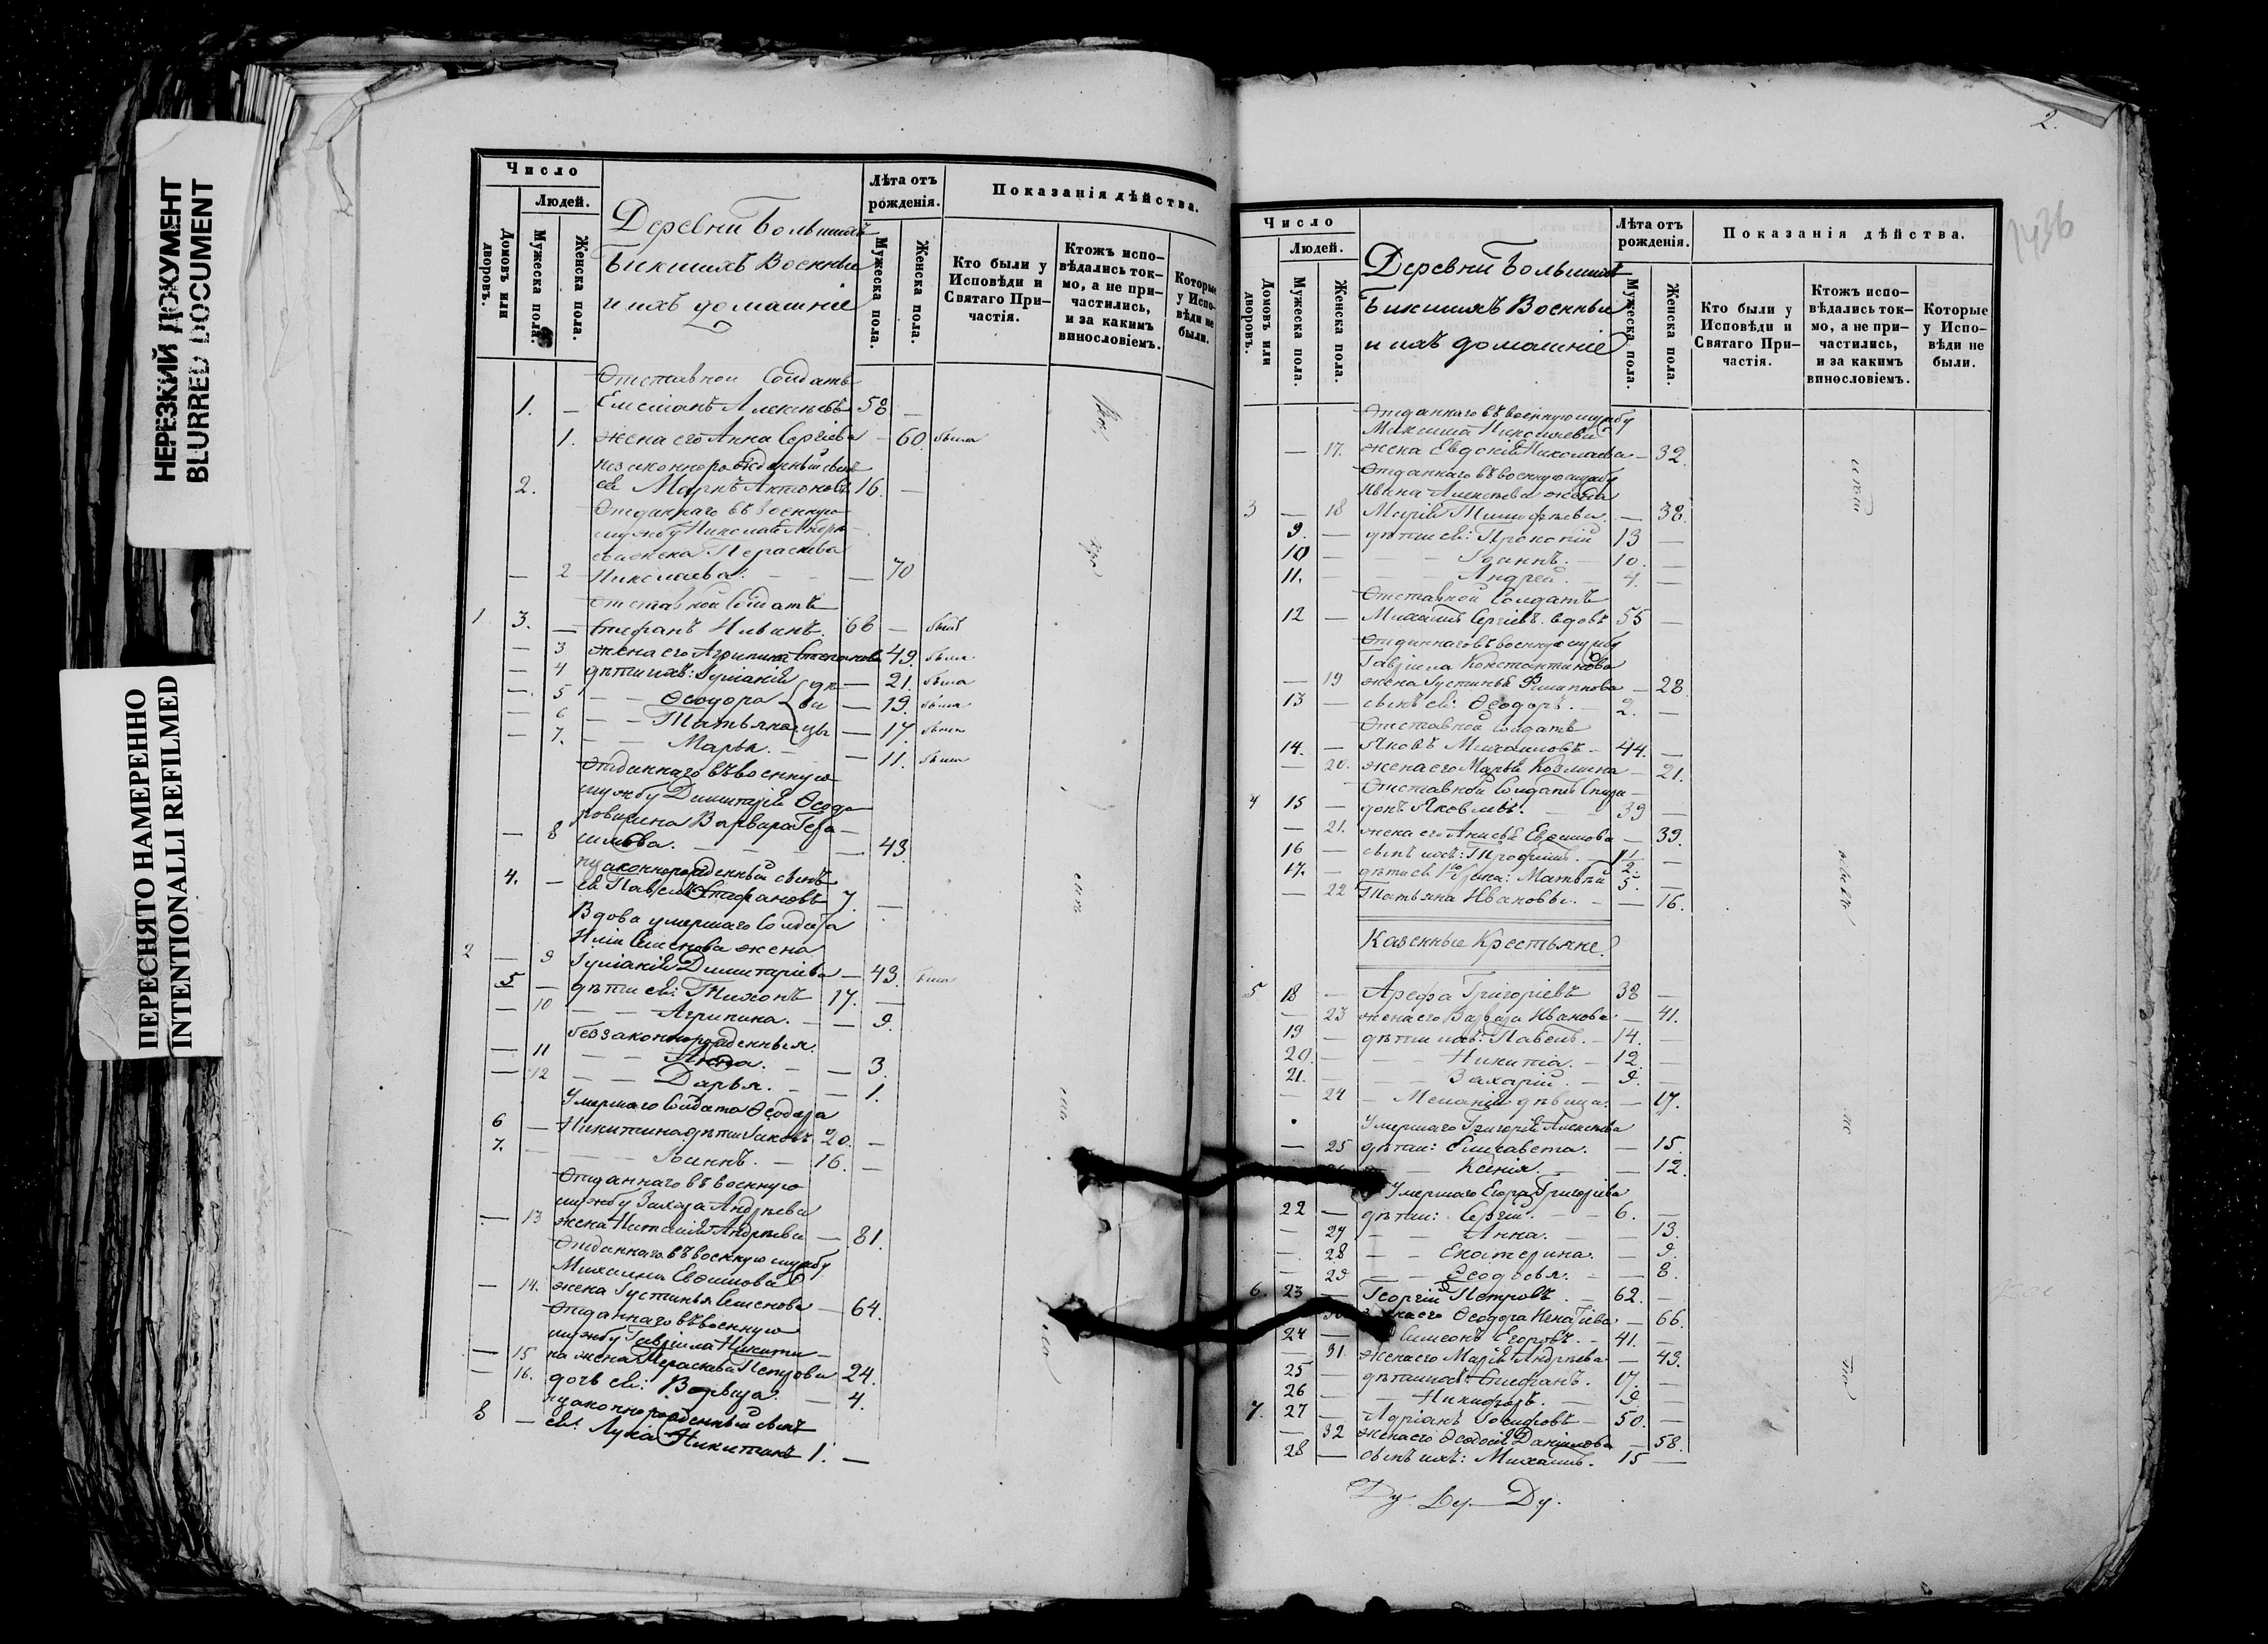 НЕРЕЗКИЙ ДОКУМЕНТ
BLURRED DOCUMENT
ПЕРЕСНЯТО НАМЕРЕННО
INTENTIONALLI REFILMED
Число
Людей.
Домовъ или дворовъ.
Мужеска пола.
Женска пола.
Деревни Большихъ
Бикшихъ Военные
и ихъ домашніе
Лѣта отъ рожденія.
Мужеска пола.
Женска пола.
Показанія дѣйства.
Кто были у Исповѣди и Святаго Причастія.
Ктожъ исповѣдались токмо, а не причастились, и за какимъ винословіемъ.
Которые у Исповѣди не были.
Отставной Солдатъ
1. — Алексѣевъ 58 —
1. жена его Анна Сергіева — 60. была
незаконнорожденный сынъ
2. ея Маркъ Антоновъ 16. —
Отданнаго въ военную
службу Николая
жена Параскева
— 2 Николаева. — 70
отставной Солдатъ
1 3. — Стефанъ Ильинъ. 68 — былъ
— 3 жена его Агрипина Степанова 49. была
— 4 дѣти ихъ: Іуліанія — 21. была
— 5 — — Ѳеодора — 19. была
— 6 — — Татьяна — 17. была
— 7. — — Марья. — 11. была
отданнаго въ военную
службу Димитрія Ѳеодо
рова жена Варвара Гера—
— 8 симова. — 43.
незаконнорожденный сынъ
4. — ея Павелъ Стефановъ 7. —
Вдова умершаго Солдата
Иліи Семенова жена
2 — 9 Іуліанія Димитріева — 43. была
5 — дѣти ея: Тихонъ 17. —
— 10 — — Агрипина. — — 9.
беззаконнорожденныя.
— 11 — — Анна. — — 3.
— 12 — — Дарья. — — 1.
Умершаго Солдата Ѳеодора
6 — Никитина дѣти Іаковъ 20. —
7. — — — Іоаннъ. — 16. —
Отданнаго въ военную
службу Захара Андреева
— 13 жена Наталія Андреева — 81.
Отданнаго въ военную службу
Михаила Евѳимова
— 14. жена Іустинья Семенова — 64.
отданнаго въ военную
службу Гавріила Никити—
— 15 на жена Параскева Петрова 24.
— 16. дочь ея: Варвара. — 4.
незаконнорожденный сынъ
8 — ея: Лука Никитинъ 1. —
2.
1436
Число
Людей.
Домовъ или дворовъ.
Мужеска пола.
Женска пола.
Деревни Большихъ
Бикшихъ Военные
и ихъ домашніе
Лѣта отъ рожденія.
Мужеска пола.
Женска пола.
Показанія дѣйства.
Кто были у Исповѣди и Святаго Причастія.
Ктожъ исповѣдались токмо, а не причастились, и за какимъ винословіемъ.
Которые у Исповѣди не были.
Отданнаго въ военную службу
— 17. жена Евдокія Николаева — 32.
Отданнаго въ военную службу
Ивана Алексѣева жена
3 — 18 Марія Тимофѣева. — 38.
9. — дѣти ея: Прокопій 13 —
10 — — — Іоаннъ. — 10. —
11. — — — Андрей. — 4. —
Отставной Солдатъ
12 — Михаилъ Сергіевъ вдовъ 55 —
Отданнаго въ военную службу
Гавріила Константинова
— 19 жена Іустинья Филиппова — 28.
13 — сынъ ея: Ѳеодоръ. — 2. —
Отставной Солдатъ
14. — Яковъ Михаиловъ — 44. —
— 20. жена его Марья Козмина — 21.
Отставной Солдатъ Спири—
4 15 — донъ Яковлевъ. 39 —
— 21. жена его Евѳимова — 39.
16 — сынъ ихъ: Трофимъ. — 11 —
17. — Матвѣй 5. —
— 22 Татьяна Иванова. — — 16.
Казенные Крестьяне.
5 18 — Арефа Григоріевъ 38 —
— 23 жена его Варвара Иванова — 41.
19 — дѣти ихъ: Павелъ. — 14. —
20. — — — Никита. — 12. —
21. — — — Захарій. — 9. —
— 24 — Меланія дѣвица. — 17.
Умершаго Григорія Алексѣева
— 25 дѣти: Елисавета. — 15.
— — Ксенія. — — 12.
Умершаго Егора Григоріева
22 — дѣти: Сергій. — — 6. —
— 27 — — Анна. — — 13.
— 28 — — Екатерина. — 9.
— 29 — — Ѳеодосья. — — 8.
6. 23 — Георгій Петровъ. — 62. —
жена его Ѳеодора — 66.
24 — Симеонъ Егоровъ. — 41. —
— 31. жена его Марія Андреева — 43.
25 — дѣти ихъ: Стефанъ. 17. —
26 — — Никифоръ. — 9. —
7. 27 — Адріанъ Іосифовъ — 50. —
— 32 жена его Ѳеодосія Даніилова — 58.
28 — сынъ ихъ: Михаилъ. 15 —